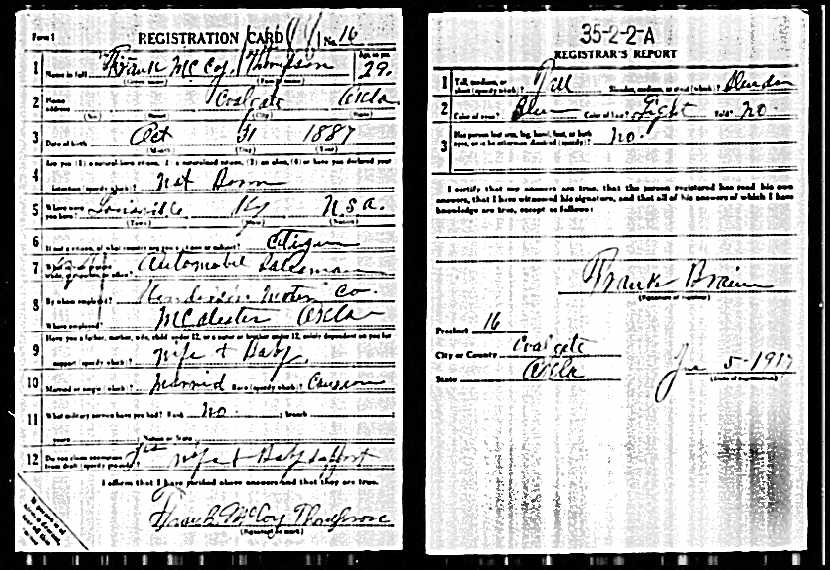 Form 1 REGISTRATION CARD No. 16
1 Name in full Frank McCoy Thompson Age, in yrs. 29.
(Given name) (Family name)
2 Home address Coalgate Okla
(No.) (Street) (City) (State)
3 Date of birth Oct 1887
(Month) (Day) (Year)
4 Are you (1) a natural-born citizen, (2) a naturalized citizen, (3) an alien, (4) or have you declared your
intention (specify which)? Nat Born
5 Where were you born? Louisville Ky U.S.A.
(Town) (State) (Nation)
6 If not a citizen, of what country are you a citizen or subject? Citizen
7 What is your present trade, occupation, or office? Automobile Salesman
8 By whom employed? Motor Co.
Where employed? McAlester Okla
9 Have you a father, mother, wife, child under 12, or a sister or brother under 12, solely dependent on you for
support (specify which)? Wife + Baby
10 Married or single (which)? Married Race (specify which)?
11 What military service have you had? Rank No. ; branch
years ; Nation or State
12 Do you claim exemption from draft (specify grounds)? Yes Wife + Baby support
I affirm that I have verified above answers and that they are true.
Frank McCoy Thompson
(Signature or mark)
35-2-2-A
REGISTRAR'S REPORT
1 Tall, medium, or short (specify which)? Tall Slender, medium, or stout (which)? Slender
2 Color of eyes? Blue Color of hair? Light Bald? No.
3 Has person lost arm, leg, hand, foot, or both eyes, or is he otherwise disabled (specify)? No.
I certify that my answers are true, that the person registered has read his own
answers, that I have witnessed his signature, and that all of his answers of which I have
knowledge are true, except as follows:
Frank
(Signature of registrar)
Precinct 16
City or County Coalgate
State Okla
5-1917
(Date of registration)